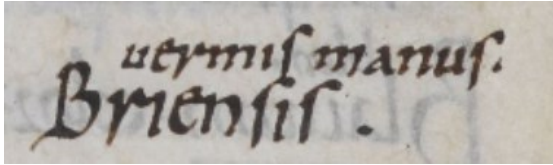 uermis manus.
Briensis.